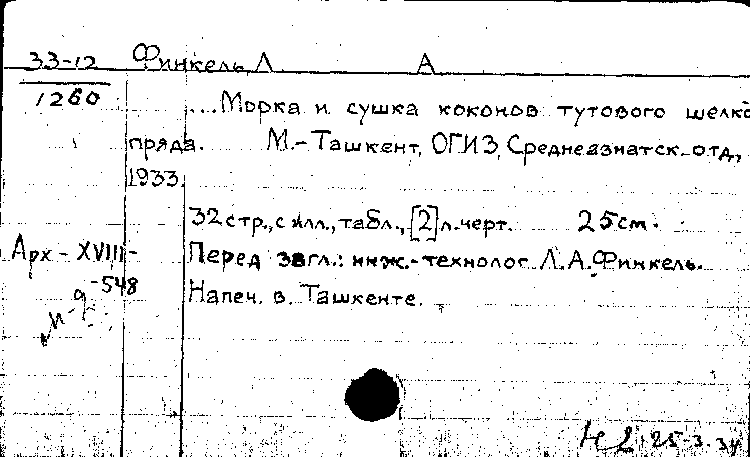 33-12 Финкель, Л. А.
1260
...Морка и сушка коконов тутового шелко
пряда. М.-Ташкент, ОГИЗ, Среднеазиатск. отд,
1933.
32 стр., с илл., табл., [2] л. черт. 25 см.
Арх - XVIII-
Перед загл.: инж.-технолог Л.А. Финкель.
-548
Напеч. в. Ташкенте.
25-3-34